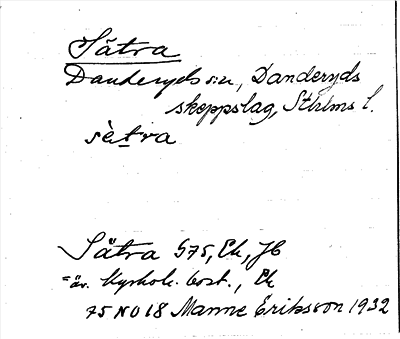 Sätra
Danderyds sn, Danderyds
skeppslag, Sthlms l.
sètra
Sätra 575, Ek, JB
= äv. Kyrkoh. bost., Ek
75 NO 18 Manne Eriksson 1932